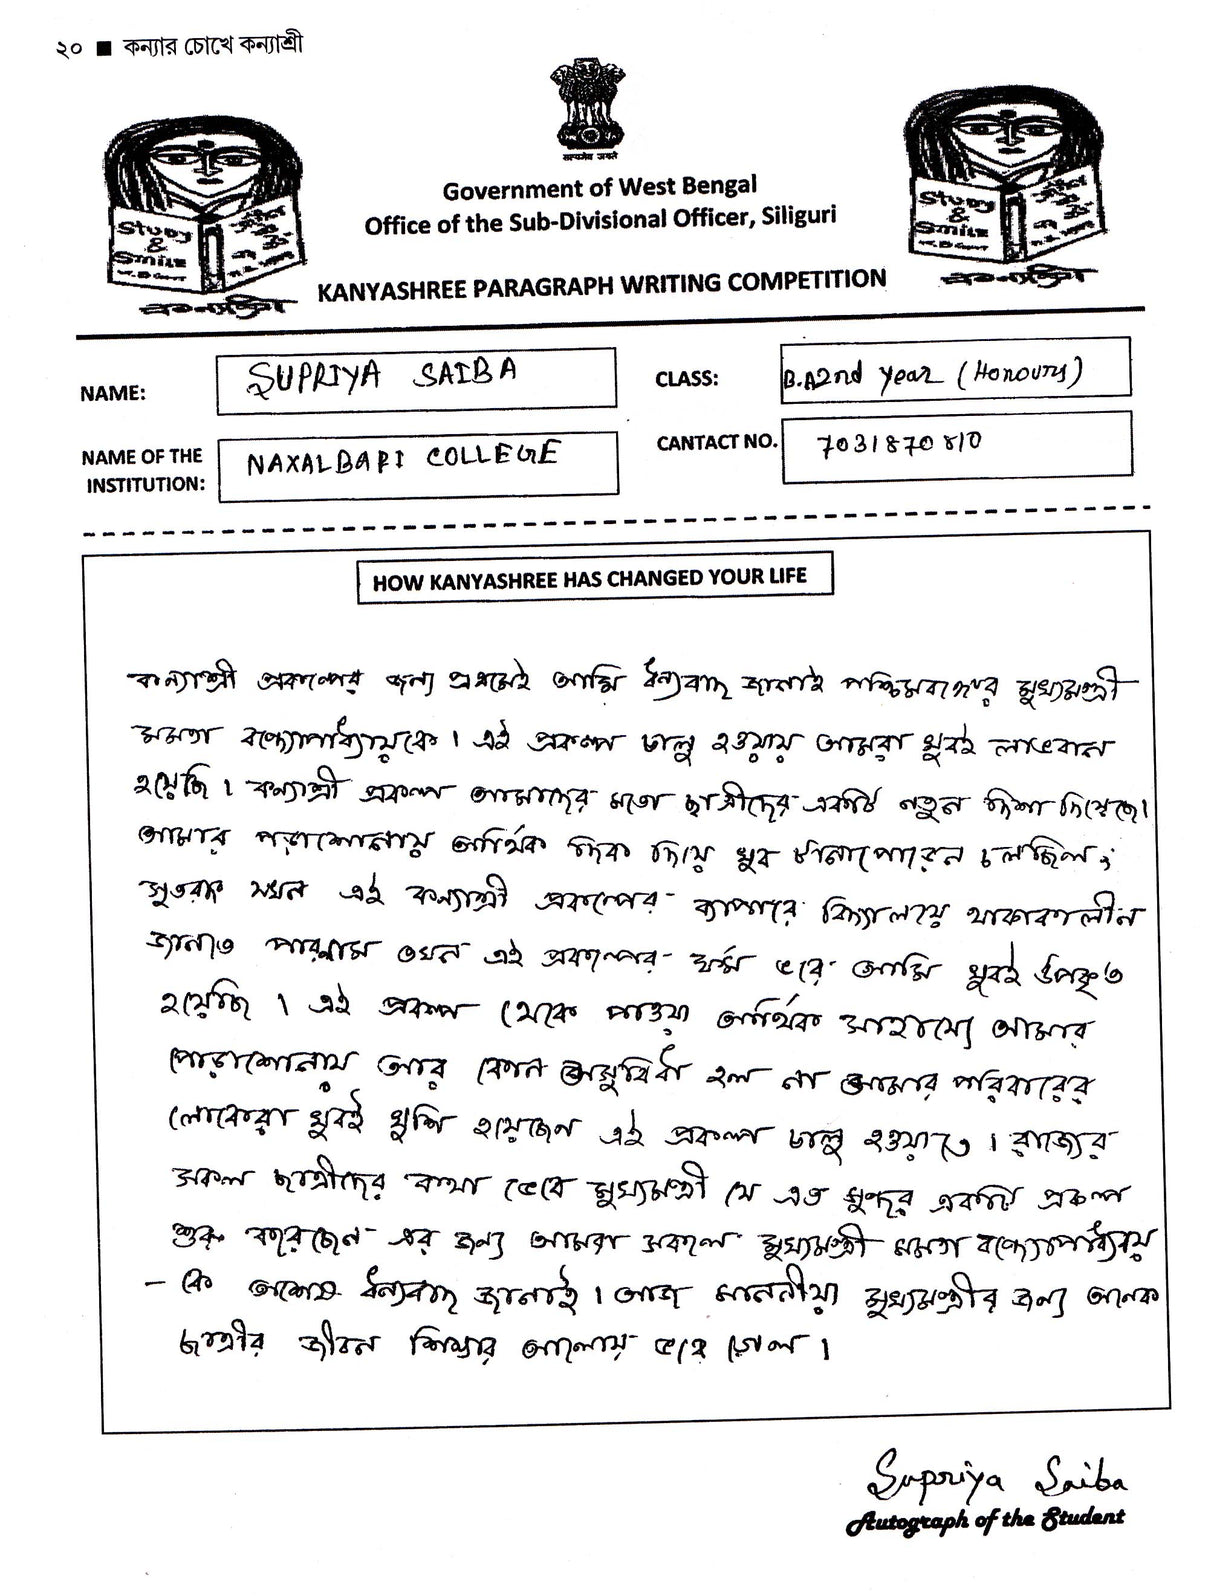 ২০ ■ কন্যার চোখে কন্যাশ্রী
सत्यमेव जयते
Government of West Bengal
Office of the Sub-Divisional Officer, Siliguri
KANYASHREE PARAGRAPH WRITING COMPETITION
Study
&
Smile
কন্যাশ্রী
Study
&
Smile
কন্যাশ্রী
NAME: SUPRIYA SAIBA CLASS: B.A 2nd year (Honours)
NAME OF THE INSTITUTION: NAXALBARI COLLEGE CANTACT NO. 7031870810
HOW KANYASHREE HAS CHANGED YOUR LIFE
কন্যাশ্রী প্রকল্পের জন্য প্রথমেই আমি ধন্যবাদ জানাই পশ্চিমবঙ্গের মুখ্যমন্ত্রী
মমতা বন্দ্যোপাধ্যায়কে। এই প্রকল্প চালু হওয়ায় আমরা খুবই লাভবান
হয়েছি। কন্যাশ্রী প্রকল্প আমাদের মতো ছাত্রীদের একটি নতুন দিশা দিয়েছে।
আমার পড়াশোনায় আর্থিক দিক দিয়ে খুব টানাপোরেন চলছিল,
সুতরাং যখন এই কন্যাশ্রী প্রকল্পের ব্যাপারে বিদ্যালয়ে থাকাকালীন
জানতে পারলাম তখন এই প্রকল্পের ফর্ম ভরে আমি খুবই উপকৃত
হয়েছি। এই প্রকল্প থেকে পাওয়া আর্থিক সাহায্যে আমার
পোড়াশোনায় আর কোন অসুবিধা হল না আমার পরিবারের
লোকেরা খুবই খুশি হয়েছেন এই প্রকল্প চালু হওয়াতে। রাজ্যের
সকল ছাত্রীদের কথা ভেবে মুখ্যমন্ত্রী যে এত সুন্দর একটি প্রকল্প
শুরু করেছেন এর জন্য আমরা সকলে মুখ্যমন্ত্রী মমতা বন্দ্যোপাধ্যায়
- কে অশেষ ধন্যবাদ জানাই। আজ মাননীয়া মুখ্যমন্ত্রীর জন্য অনেক
ছাত্রীর জীবন শিক্ষার আলোয় ভরে গেল।
Supriya Saiba
Autograph of the Student